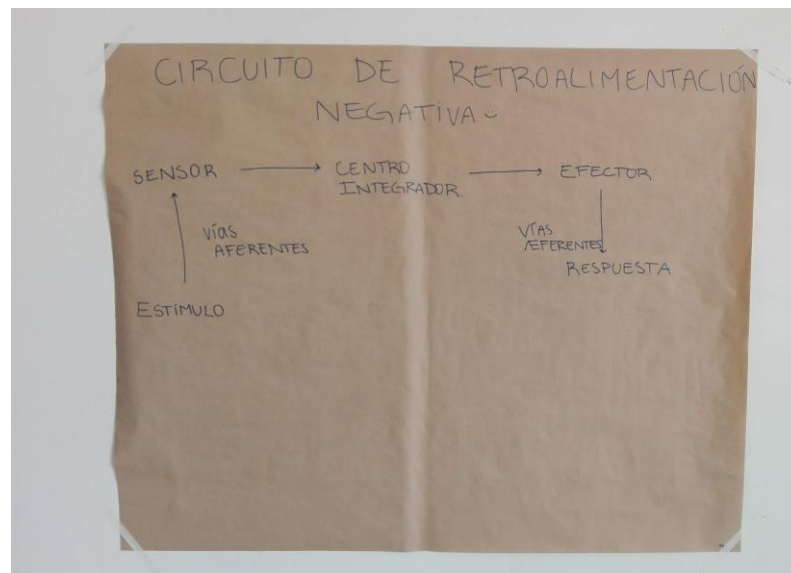 CIRCUITO DE RETROALIMENTACIÓN
NEGATIVA
SENSOR
CENTRO
INTEGRADOR.
EFECTOR
Vías
AFERENTES
VÍAS
EFERENTES
RESPUESTA
ESTÍMULO